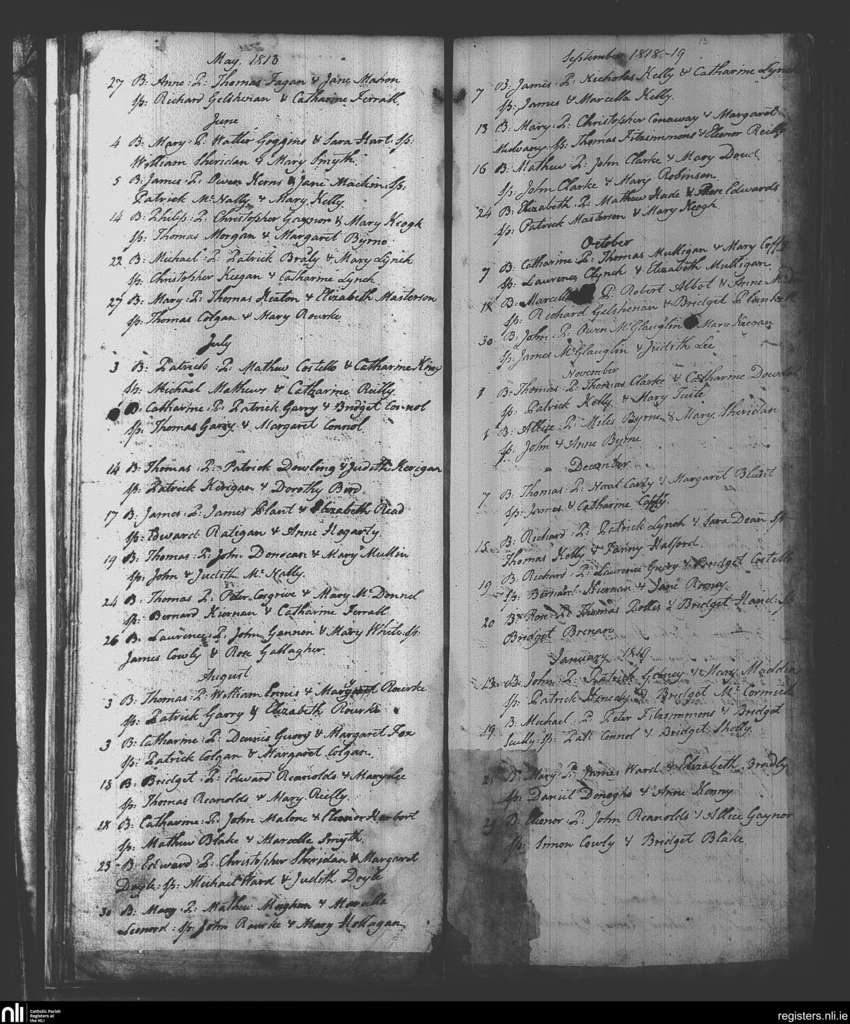 May, 1818
27 B: Anne: P: Thomas Fagan & Jane Masson
Sp: Richard Gelshenan & Catharine Ferrall.
June
4 B: Mary: P: Walter Goggins & Sara Hart. Sp:
William Sheridan & Mary Smyth.
5 B: James: P: Owen Kerns & Jane Mackin. Sp:
Patrick McNally & Mary Kelly.
14 B: Philip: P: Christopher Gaynor & Mary Keogh
Sp: Thomas Morgan & Margaret Byrne.
22 B: Michael: P: Patrick Brady & Mary Lynch
Sp: Christopher Keegan & Catharine Lynch
27 B: Mary: P: Thomas Keaton & Elizabeth Masterson
Sp: Thomas Colgan & Mary Rourke
July
3 B: Patrick: P: Mathew Costello & Catharine
Sp: Michael Mathews & Catharine Reilly
B: Catharine: P: Patrick Garry & Bridget Connol
Sp: Thomas Garry & Margaret Connol
14 B: Thomas: P: Patrick Dowling & Judith Kerigan
Sp: Patrick Kerigan & Dorothy Bird.
17 B: James: P: James Plant & Elizabeth Read
Sp: Edward Ratigan & Anne Hogarty
19 B: Thomas: P: John Donocan & Mary Mullin
Sp: John & Judith McNally.
24 B: Thomas: P: Peter Cosgrive & Mary McDonnel
Sp: Bernard Kiernan & Catharine Ferrall
26 B: Laurence: P: John Gannon & Mary White. Sp:
James Cowly & Rose Gallagher.
August
3 B: Thomas: P: William Ennis & Margaret Rourke
Sp: Patrick Garry & Elizabeth Rourke
3 B: Catharine: P: Dennis Guory & Margaret Fox
Sp: Patrick Colgan & Margaret Colgan.
18 B: Bridget: P: Edward Reanolds & Mary Lee
Sp: Thomas Reanolds & Mary Reilly.
18 B: Catharine: P: John Malone & Eleonor Harbort
Sp: Mathew Blake & Marcella Smyth.
23 B: Edward: P: Christopher Sheridan & Margaret
Doyle: Sp: Michael Ward & Judith Doyle
30 B: Mary: P: Mathew Meighan & Marcella
Leonord: Sp: John Rourke & Mary Hollagan
13
September 1818-19
7 B: James: P: Nicholas Kelly & Catharine Lynch
Sp: James & Marcella Kelly.
13 B: Mary: P: Christopher Conaway & Margaret
Mulvany: Sp: Thomas Fitzsimmons & Elenor Reilly
16 B: Mathew: P: John Clarke & Mary Doud
Sp: John Clarke & Mary Robinson
24 B: Elizabeth: P: Mathew Hade & Edwards
Sp: Patrick Masterson & Mary Keogh
October
7 B: Catharine: P: Thomas Mulligan & Mary Coffy
Sp: Laurence Clynch & Elizabeth Mulligan
18 B: Marcella P: Robert Albot & Anne
Sp: Richard Gelshenan & Bridget Plunkett
30 B: John: P: Owen McGlauglin & Mary Keenan
Sp: James McGlauglin & Judith Lee
November
1 B: Thomas: P: Thomas Clarke & Catharine
Sp: Patrick Kelly & Mary Tuite
1 B: Allice: P: Miles Byrne & Mary Sheridan
Sp: John & Anne Byrne
December
7 B: Thomas: P: Neal Carty & Margaret Blunt
Sp: James & Catharine Coffy.
15 B: Richard: P: Patrick Lynch & Sara Dean Sp:
Thomas Kelly & Fanny Halford.
19 B: Richard: P: Laurence Guory & Bridget Costello
Sp: Bernard Kiernan & Jane Rooney
20 B: P: Thomas & Bridget Hand. Sp:
Bridget Brenan
January 1819
13 B: John: P: Patrick & Mary Madden
Sp: Patrick Kenedy & Bridget McCormick
19 B: Michael: P: Peter Fitzsimmons & Bridget
Scully: Sp: Patt Connol & Bridget Shelly
21 B: Mary: P: James Ward & Elizabeth Bradly
Sp: Daniel Donoghe & Anne Kenny
B: Elenor: P: John Reanolds & Allice Gaynor
Sp: Simon Cowly & Bridget Blake
nli Catholic Parish
Registers at
the NLI
registers.nli.ie